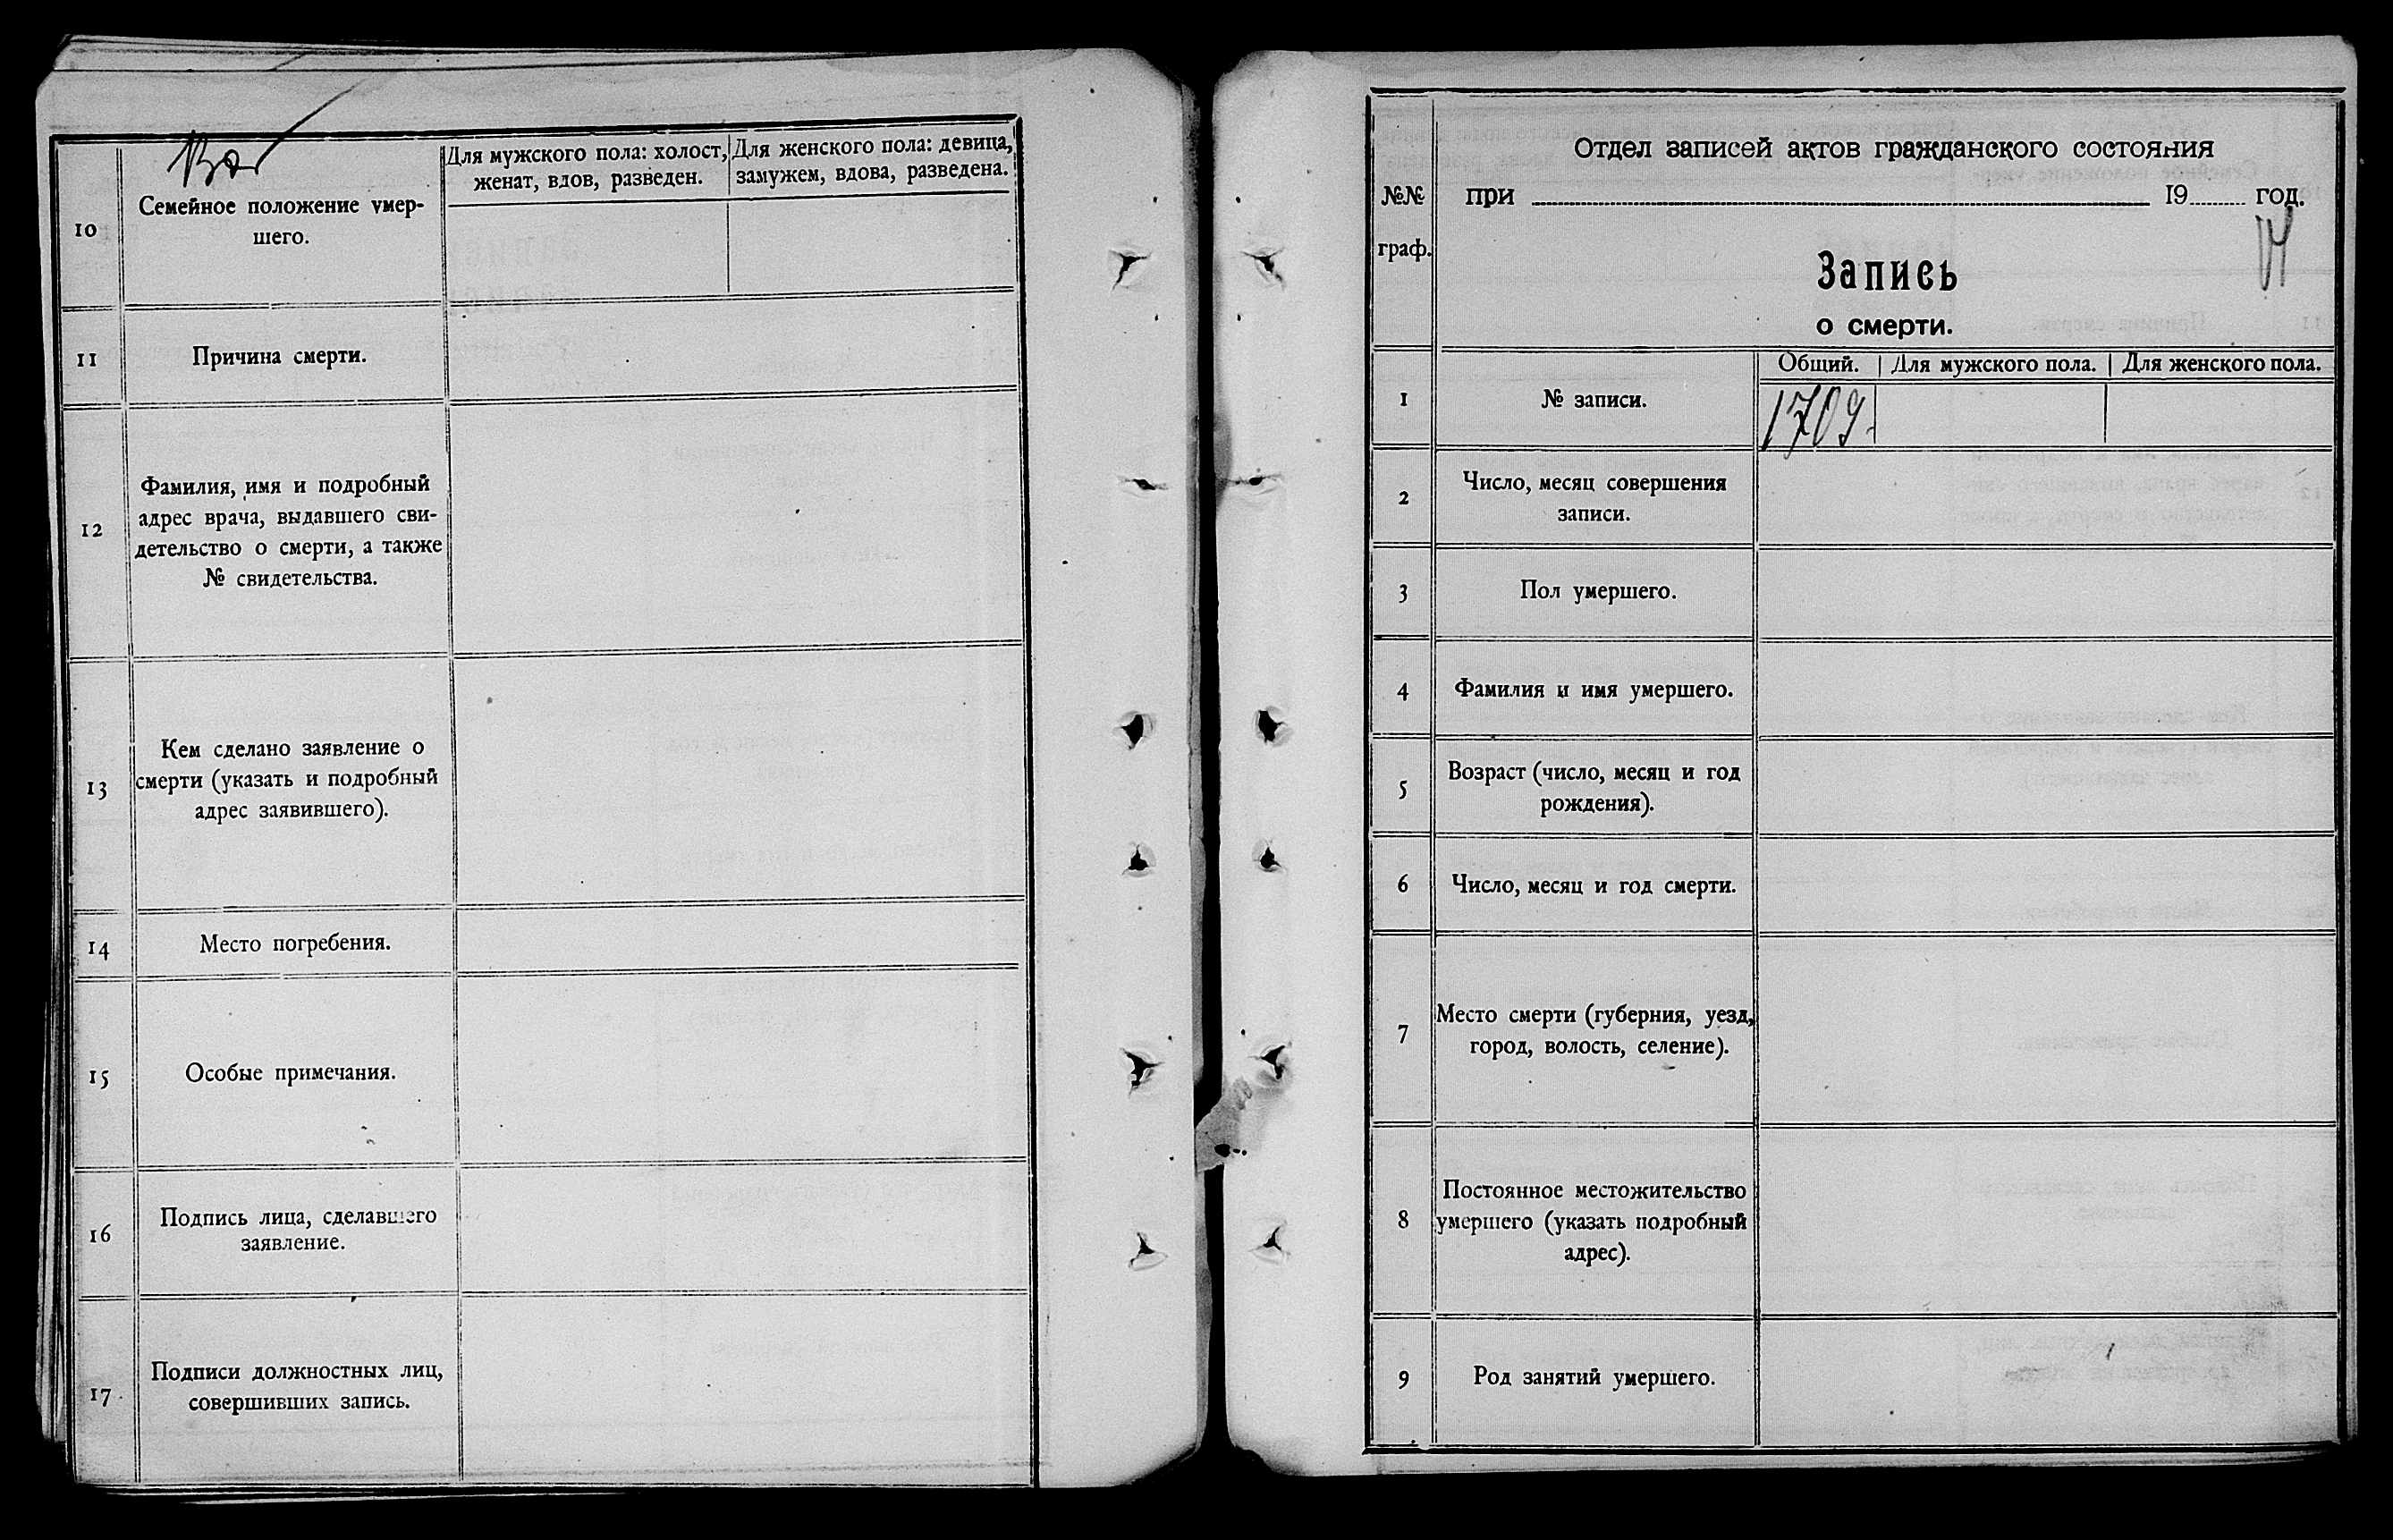 10
Семейное положение умер-
шего.
Для мужского пола: холост,
женат, вдов, разведен.
Для женского пола: девица,
замужем, вдова, разведена.
11
Причина смерти.
12
Фамилия, имя и подробный
адрес врача, выдавшего сви-
детельство о смерти, а также
№ свидетельства.
13
Кем сделано заявление о
смерти (указать и подробный
адрес заявившего).
14
Место погребения.
15
Особые примечания.
16
Подпись лица, сделавшего
заявление.
17
Подписи должностных лиц,
совершивших запись.
№№
граф.
Отдел записей актов гражданского состояния
при 19 год.
Запись
о смерти.
1
№ записи.
Общий. Для мужского пола. Для женского пола.
1709.
2
Число, месяц совершения
записи.
3
Пол умершего.
4
Фамилия и имя умершего.
5
Возраст (число, месяц и год
рождения).
6
Число, месяц и год смерти.
7
Место смерти (губерния, уезд,
город, волость, селение).
8
Постоянное местожительство
умершего (указать подробный
адрес).
9
Род занятий умершего.